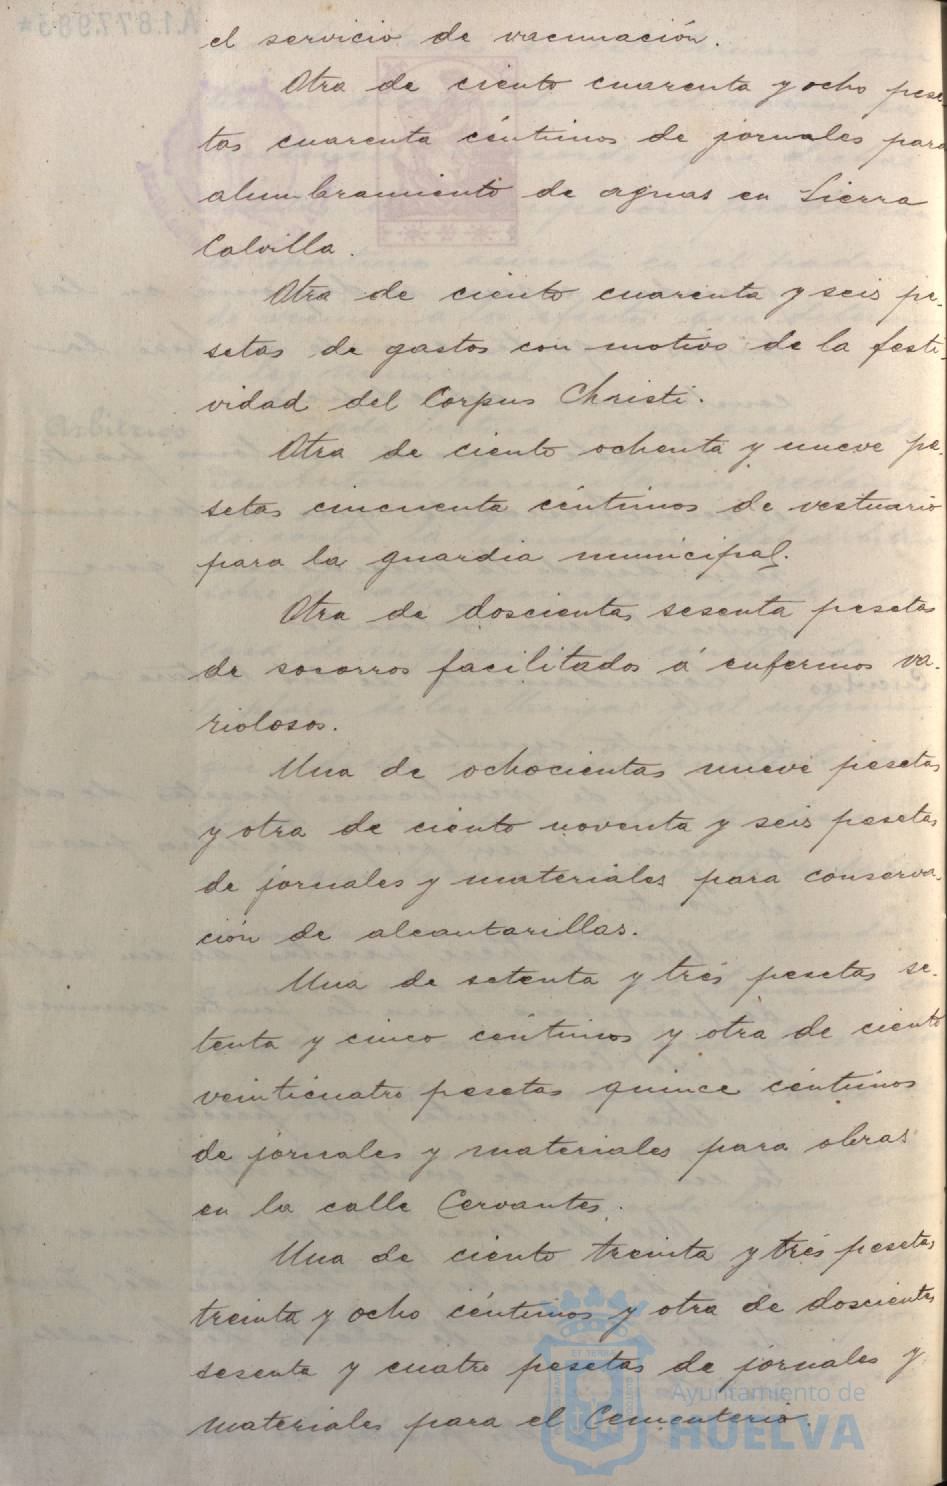 el servicio de vacunación.
Otra de ciento cuarenta y ocho pese-
tas cuarenta céntimos de jornales para
alumbramiento de aguas en Sierra
Calvilla.
Otra de ciento cuarenta y seis pe-
setas de gastos con motivo de la festi-
vidad del Corpus Christi.
Otra de ciento ochenta y nueve pe-
setas cincuenta céntimos de vestuario
para la guardia municipal.
Otra de doscientas sesenta pesetas
de socorros facilitados á enfermos va-
riolosos.
Una de ochocientas nueve pesetas
y otra de ciento noventa y seis pesetas
de jornales y materiales para conserva-
ción de alcantarillas.
Una de setenta y tres pesetas se-
tenta y cinco céntimos y otra de ciento
veinticuatro pesetas quince céntimos
de jornales y materiales para obras
en la calle Cervantes.
Una de ciento treinta y tres pesetas
treinta y ocho céntimos y otra de doscientas
sesenta y cuatro pesetas de jornales y
materiales para el Cementerio.
Ayuntamiento de
HUELVA